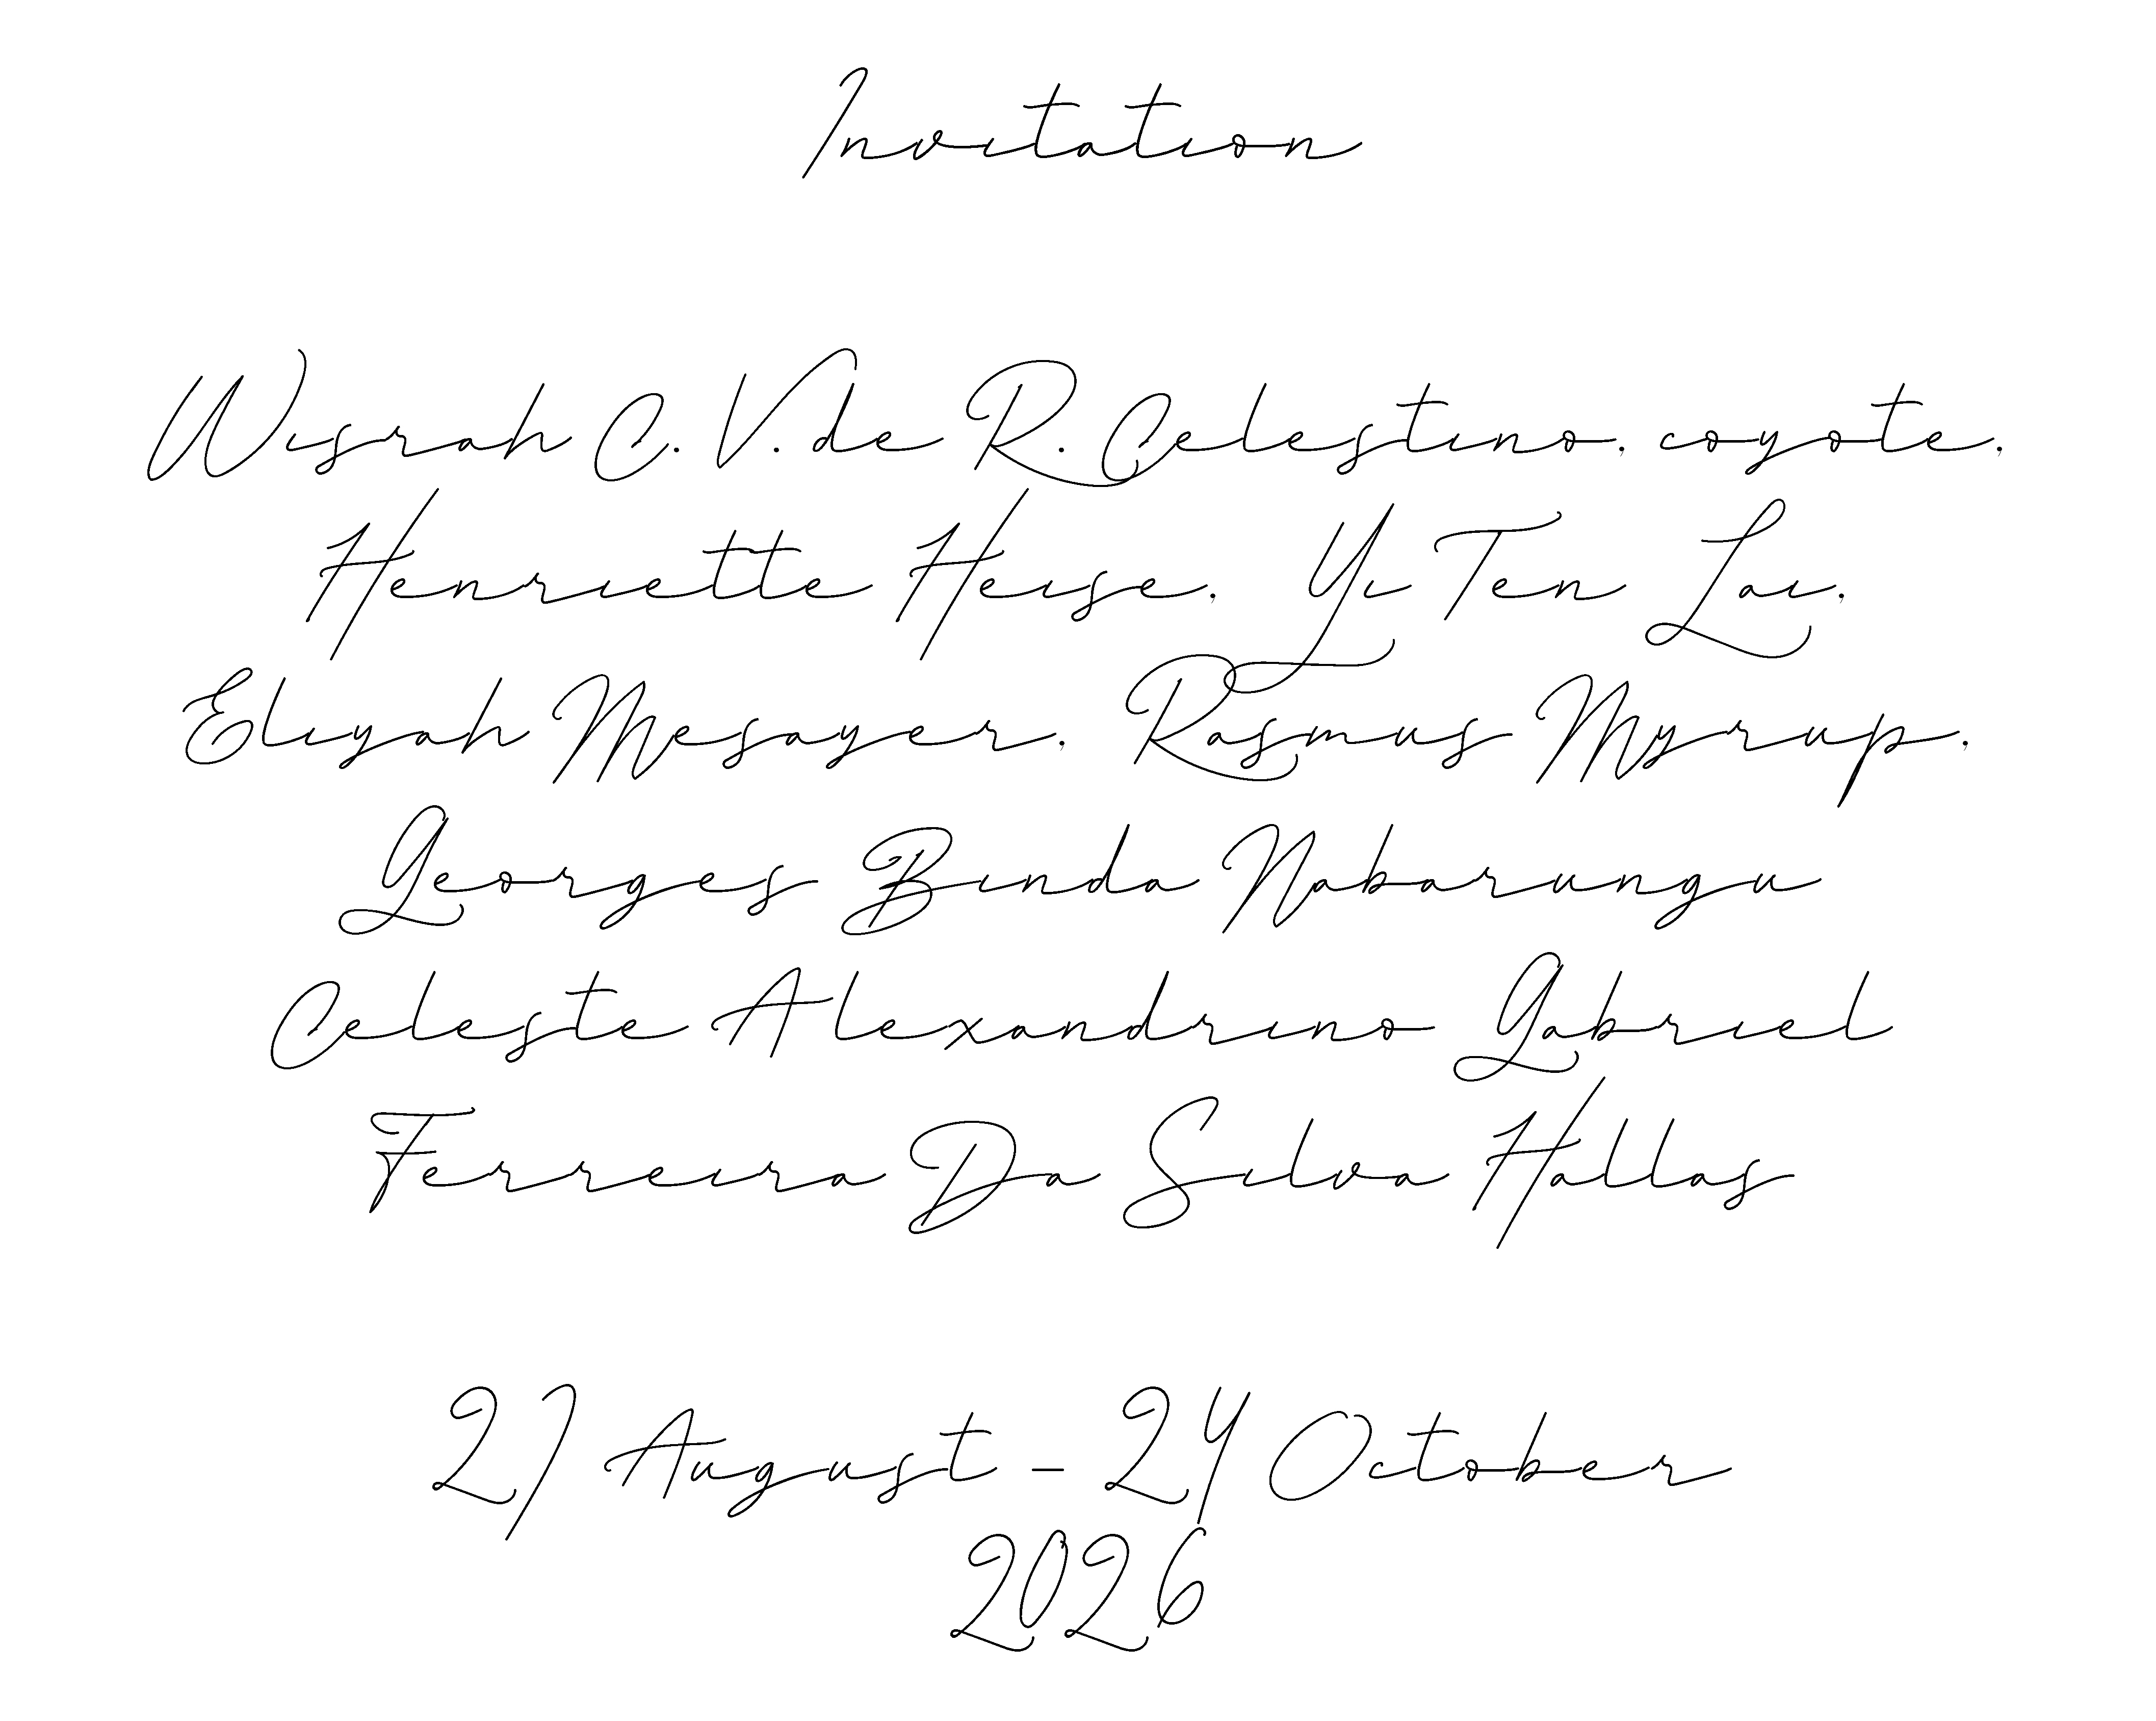 Invitation
Wisrah C. V. de R. Celestino, coyote,
Henriette Heise, Yi Ten Lai,
Eliyah Mesayer, Rasmus Myrup,
Georges Binda Nabarungu
Celeste Alexandrino Gabriel
Ferreira Da Silva Hallas
27 August - 24 October
2026